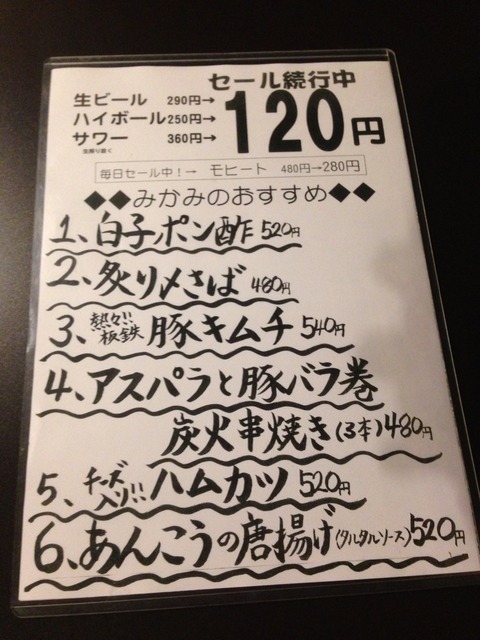 セール続行中
生ビール 290円→
ハイボール 250円→
サワー 360円→
120円
生搾り除く
毎日セール中！→ モヒート 480円→280円
◆◆みかみのおすすめ◆◆
1、白子ポン酢 520円
2、炙り〆さば 480円
3、熱々!!板鉄 豚キムチ 540円
4、アスパラと豚バラ巻
炭火串焼き(3本)480円
5、チーズ入り!!ハムカツ 520円
6、あんこうの唐揚げ(タルタルソース)520円